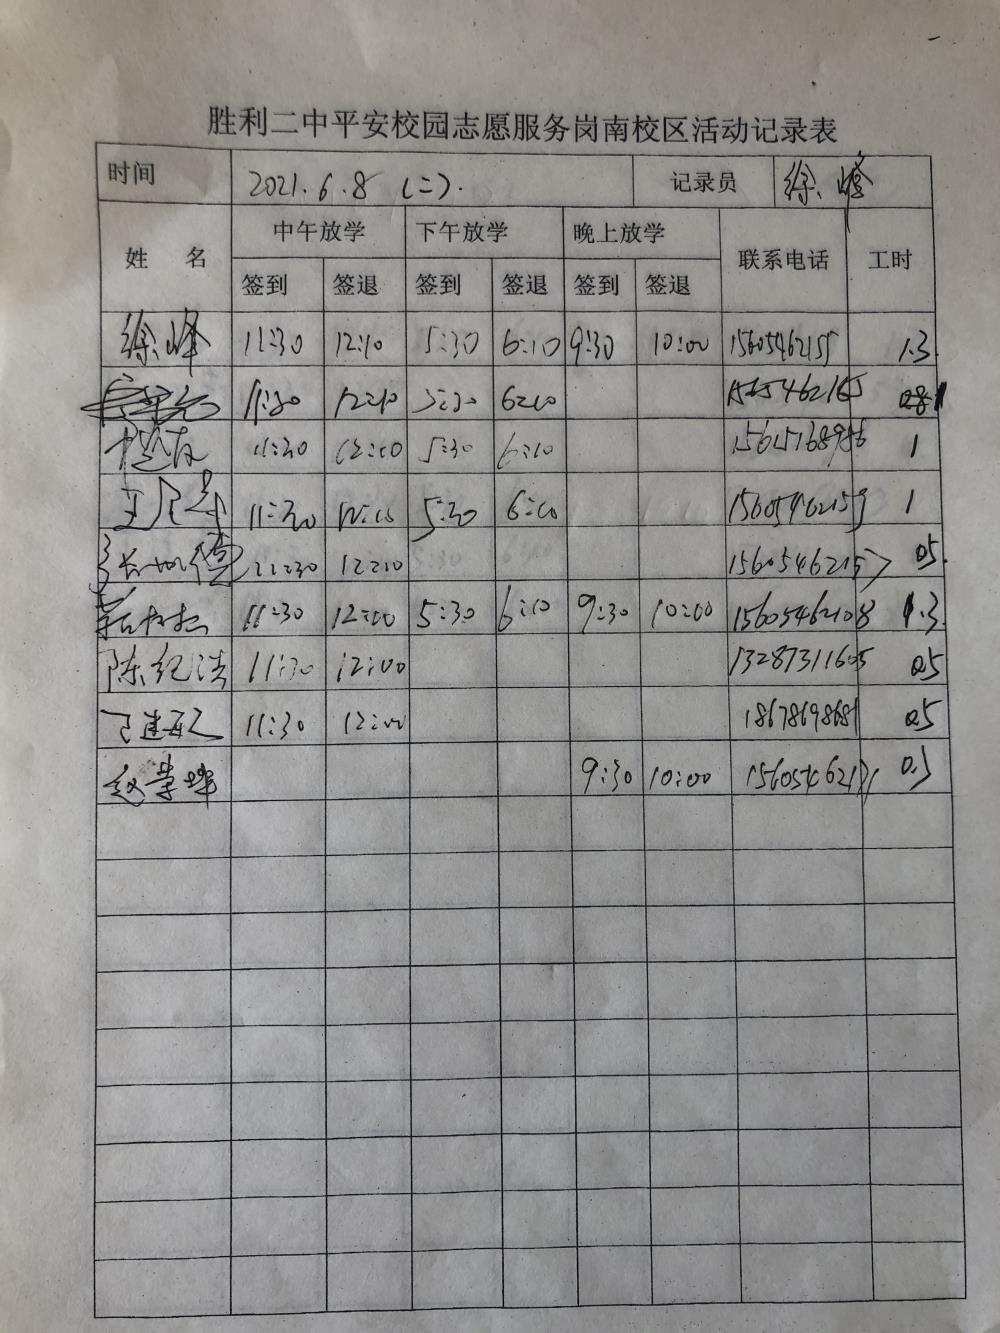 胜利二中平安校园志愿服务岗南校区活动记录表
时间 2021.6.8 (二). 记录员 徐峰
姓 名 中午放学 下午放学 晚上放学 联系电话 工时
签到 签退 签到 签退 签到 签退
徐峰 11:30 12:10 5:30 6:10 9:30 10:00 15605462155 1.3
11:30 12:10 5:30 6:10
11:30 12:00 5:30 6:10 1
11:30 5:30 6:10 15605462159 1
11:30 12:10 15605462157 0.5
11:30 12:00 5:30 6:10 9:30 10:00 15605462108 1.3
陈纪浩 11:30 12:00 13287311605 0.5
11:30 12:00 18678698681 0.5
赵荣坤 9:30 10:00